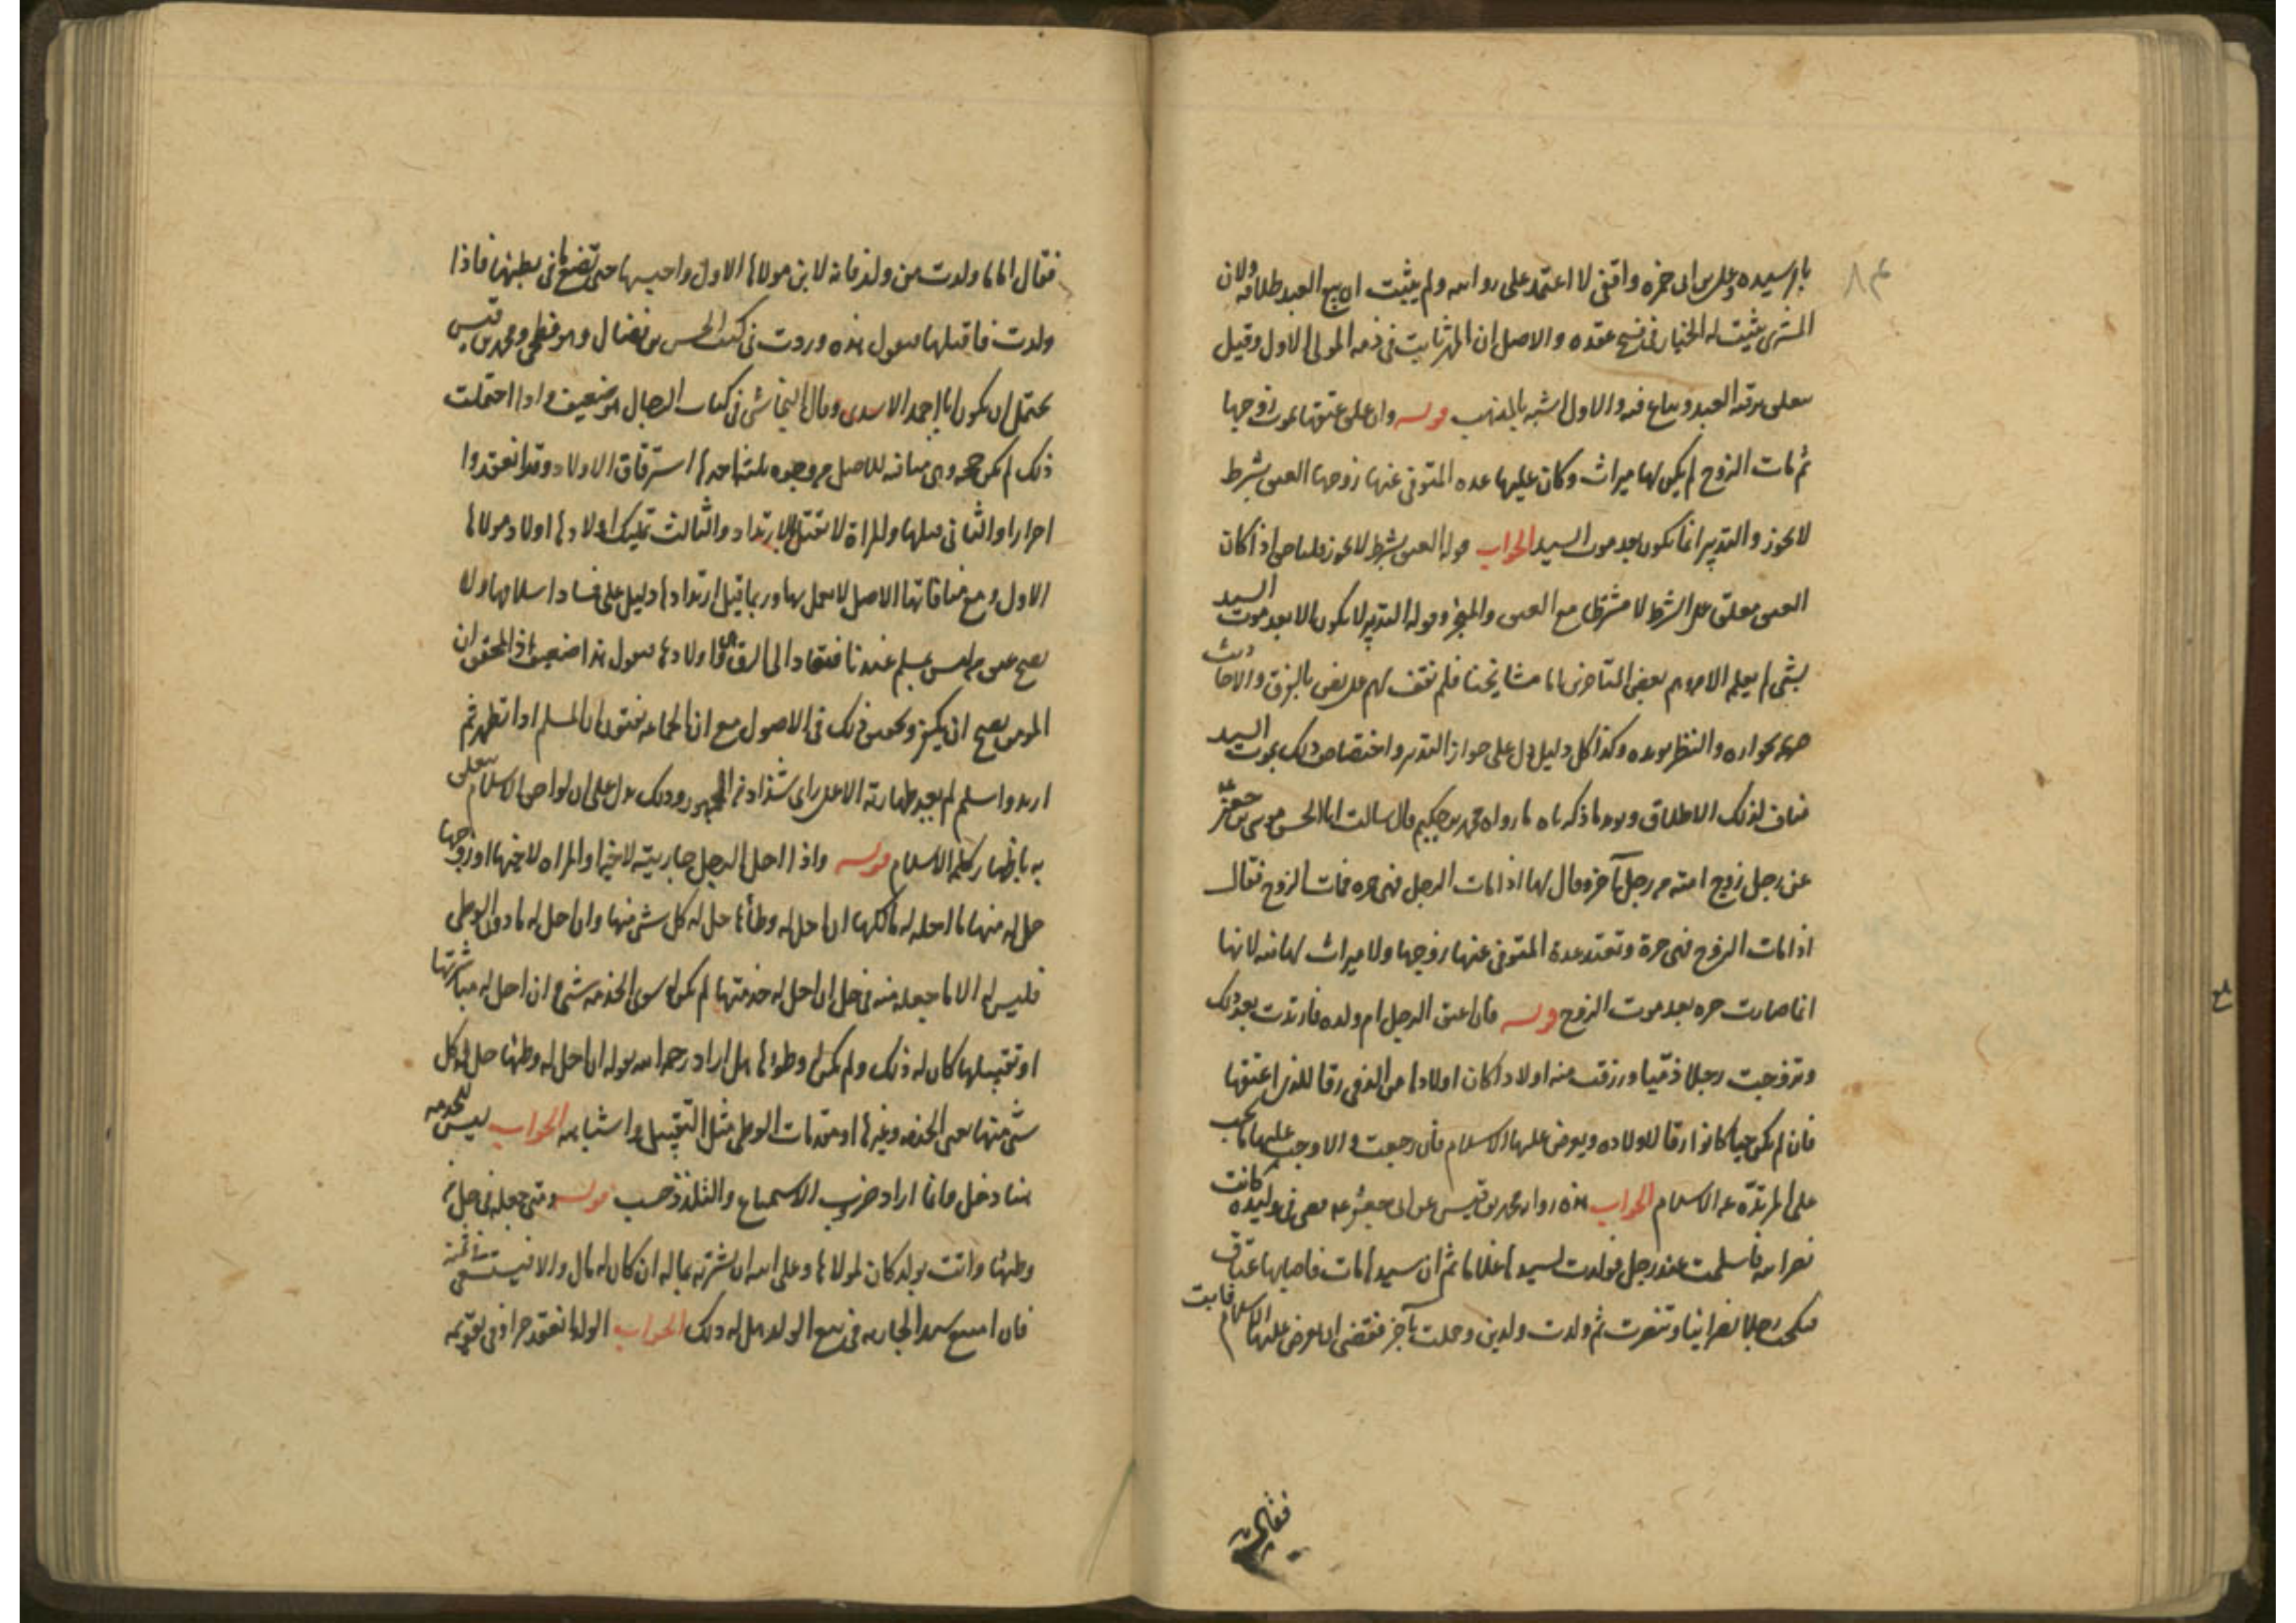 ٨٤
باذن سيده وعلي بن ابي حمزه واقفي لا اعتمد على روايته ولم يثبت ان بيع العبد طلاقه ولان
المشتري يثبت له الخيار في فسخ عقده والاصل ان المهر ثابت في ذمه المولى الاول وقيل
يتعلق برقبه العبد ويباع فيه والاول اشبه بالمذهب قوله وان علق عتقها بموت زوجها
ثم مات الزوج لم يكن لها ميراث وكان عليها عده المتوفى عنها زوجها العتق بشرط
لا يجوز والتدبير انما يكون بعد موت السيد الجواب قوله العتق بشرط لا يجوز قلنا حق اذا كان
العتق معلق على الشرط لا مشترطا مع العتق والمنجز وقوله التدبير لا يكون الا بعد موت السيد
شي لم يعلم الا من بعض المتاخرين اما مشايخنا فلم نقف لهم على نص بالفرق والاحاديث
بجوازه والنظر يويده وكذا كل دليل دل على جواز التدبير واختصاص ذلك بموت السيد
مناف لذلك الاطلاق ويويد ما ذكرناه ما رواه محمد بن حكيم قال سالت ابا الحسن موسى بن جعفر
عن رجل زوج امته من رجل آخر وقال لها اذا مات الرجل فهي حره فمات الزوج فقال
اذا مات الزوج فهي حرة وتعتد عدة المتوفى عنها زوجها ولا ميراث لها منه لانها
انما صارت حره بعد موت الزوج قوله فان اعتق الرجل ام ولده فارتدت بعد ذلك
وتزوجت رجلا ذميا ورزقت منه اولادا كان اولادها من الذمي رقا للذي اعتقها
فان لم يكن حيا كانوا رقا لاولاده ويعرض عليها الاسلام فان رجعت والا وجب عليها ما يجب
على المرتدة عن الاسلام الجواب هذه رواية محمد بن قيس عن ابي جعفر ع قضى في وليدة كانت
نصرانيه فاسلمت عند رجل فولدت لسيدها غلاما ثم ان سيدها مات فاصابها عتاق
فنكحت رجلا نصرانيا وتنصرت ثم ولدت ولدين وحملت بآخر فقضى ان يعرض عليها الاسلام فابت
فقال
فقال اما ما ولدت من ولد فانه لابن مولاها الاول واحبسها حتى تضع ما في بطنها فاذا
ولدت فاقتلها فنقول هذه وردت في كتب الحسن بن فضال وهو فطحي ومحمد بن قيس
يحتمل ان يكون ابا احمد الاسدي وقال النجاشي في كتاب الرجال هو ضعيف واذا احتملت
ذلك لم يكن حجه وهي منافيه للاصل من وجوه ثلثه احدها استرقاق الاولاد وقد انعقدوا
احرارا والثاني قتلها والمراة لا تقتل بالارتداد والثالث تمليك اولادها اولاد مولاها
الاول ومع منافاتها الاصل لا يعمل بها وربما قيل ارتدادها دليل على فساد اسلامها ولا
يصح عتق من ليس بمسلم عندنا فتعاد الى الرق واولادها فنقول هذا ضعيف اذ المحقق ان
المومن يصح ان يكفر وتحقيق ذلك في الاصول مع ان الجماعه يفتون ان المسلم اذا تطهر ثم
ارتد واسلم لم يعد طهارته الا على راي شذاذ من الجمهور وذلك يدل على ان لواحق الاسلام يتعلق
به باظهار كلمه الاسلام قوله واذا احل الرجل جاريته لاخيه او المراه لاخيها او زوجها
حل له منها ما احله له مالكها ان احل له وطأها حل له كل شي منها وان احل له ما دون الوطي
فليس له الا ما جعله منه في حل ان احل له خدمتها لم يكن له سوى الخدمه شي وان احل له مباشرتها
او تقبيلها كان له ذلك ولم يكن له وطوها هل اراد رحمه الله بقوله ان احل له وطئها حل له كل
شي منها يعني الخدمه وغيرها او مقدمات الوطي مثل التقبيل واشباهه الجواب ليس للخدمه
هنا دخل وانما اراد ضروب الاستمتاع والتلذذ حسب قوله ومتى جعله في حل من
وطئها واتت بولد كان لمولاها وعلى ابيه ان يشتريه بماله ان كان له مال والا فيستسعى في ثمنه
فان امتنع سيد الجاريه من بيع الولد هل له ذلك الجواب الولد انعقد حرا وفي تقويمه